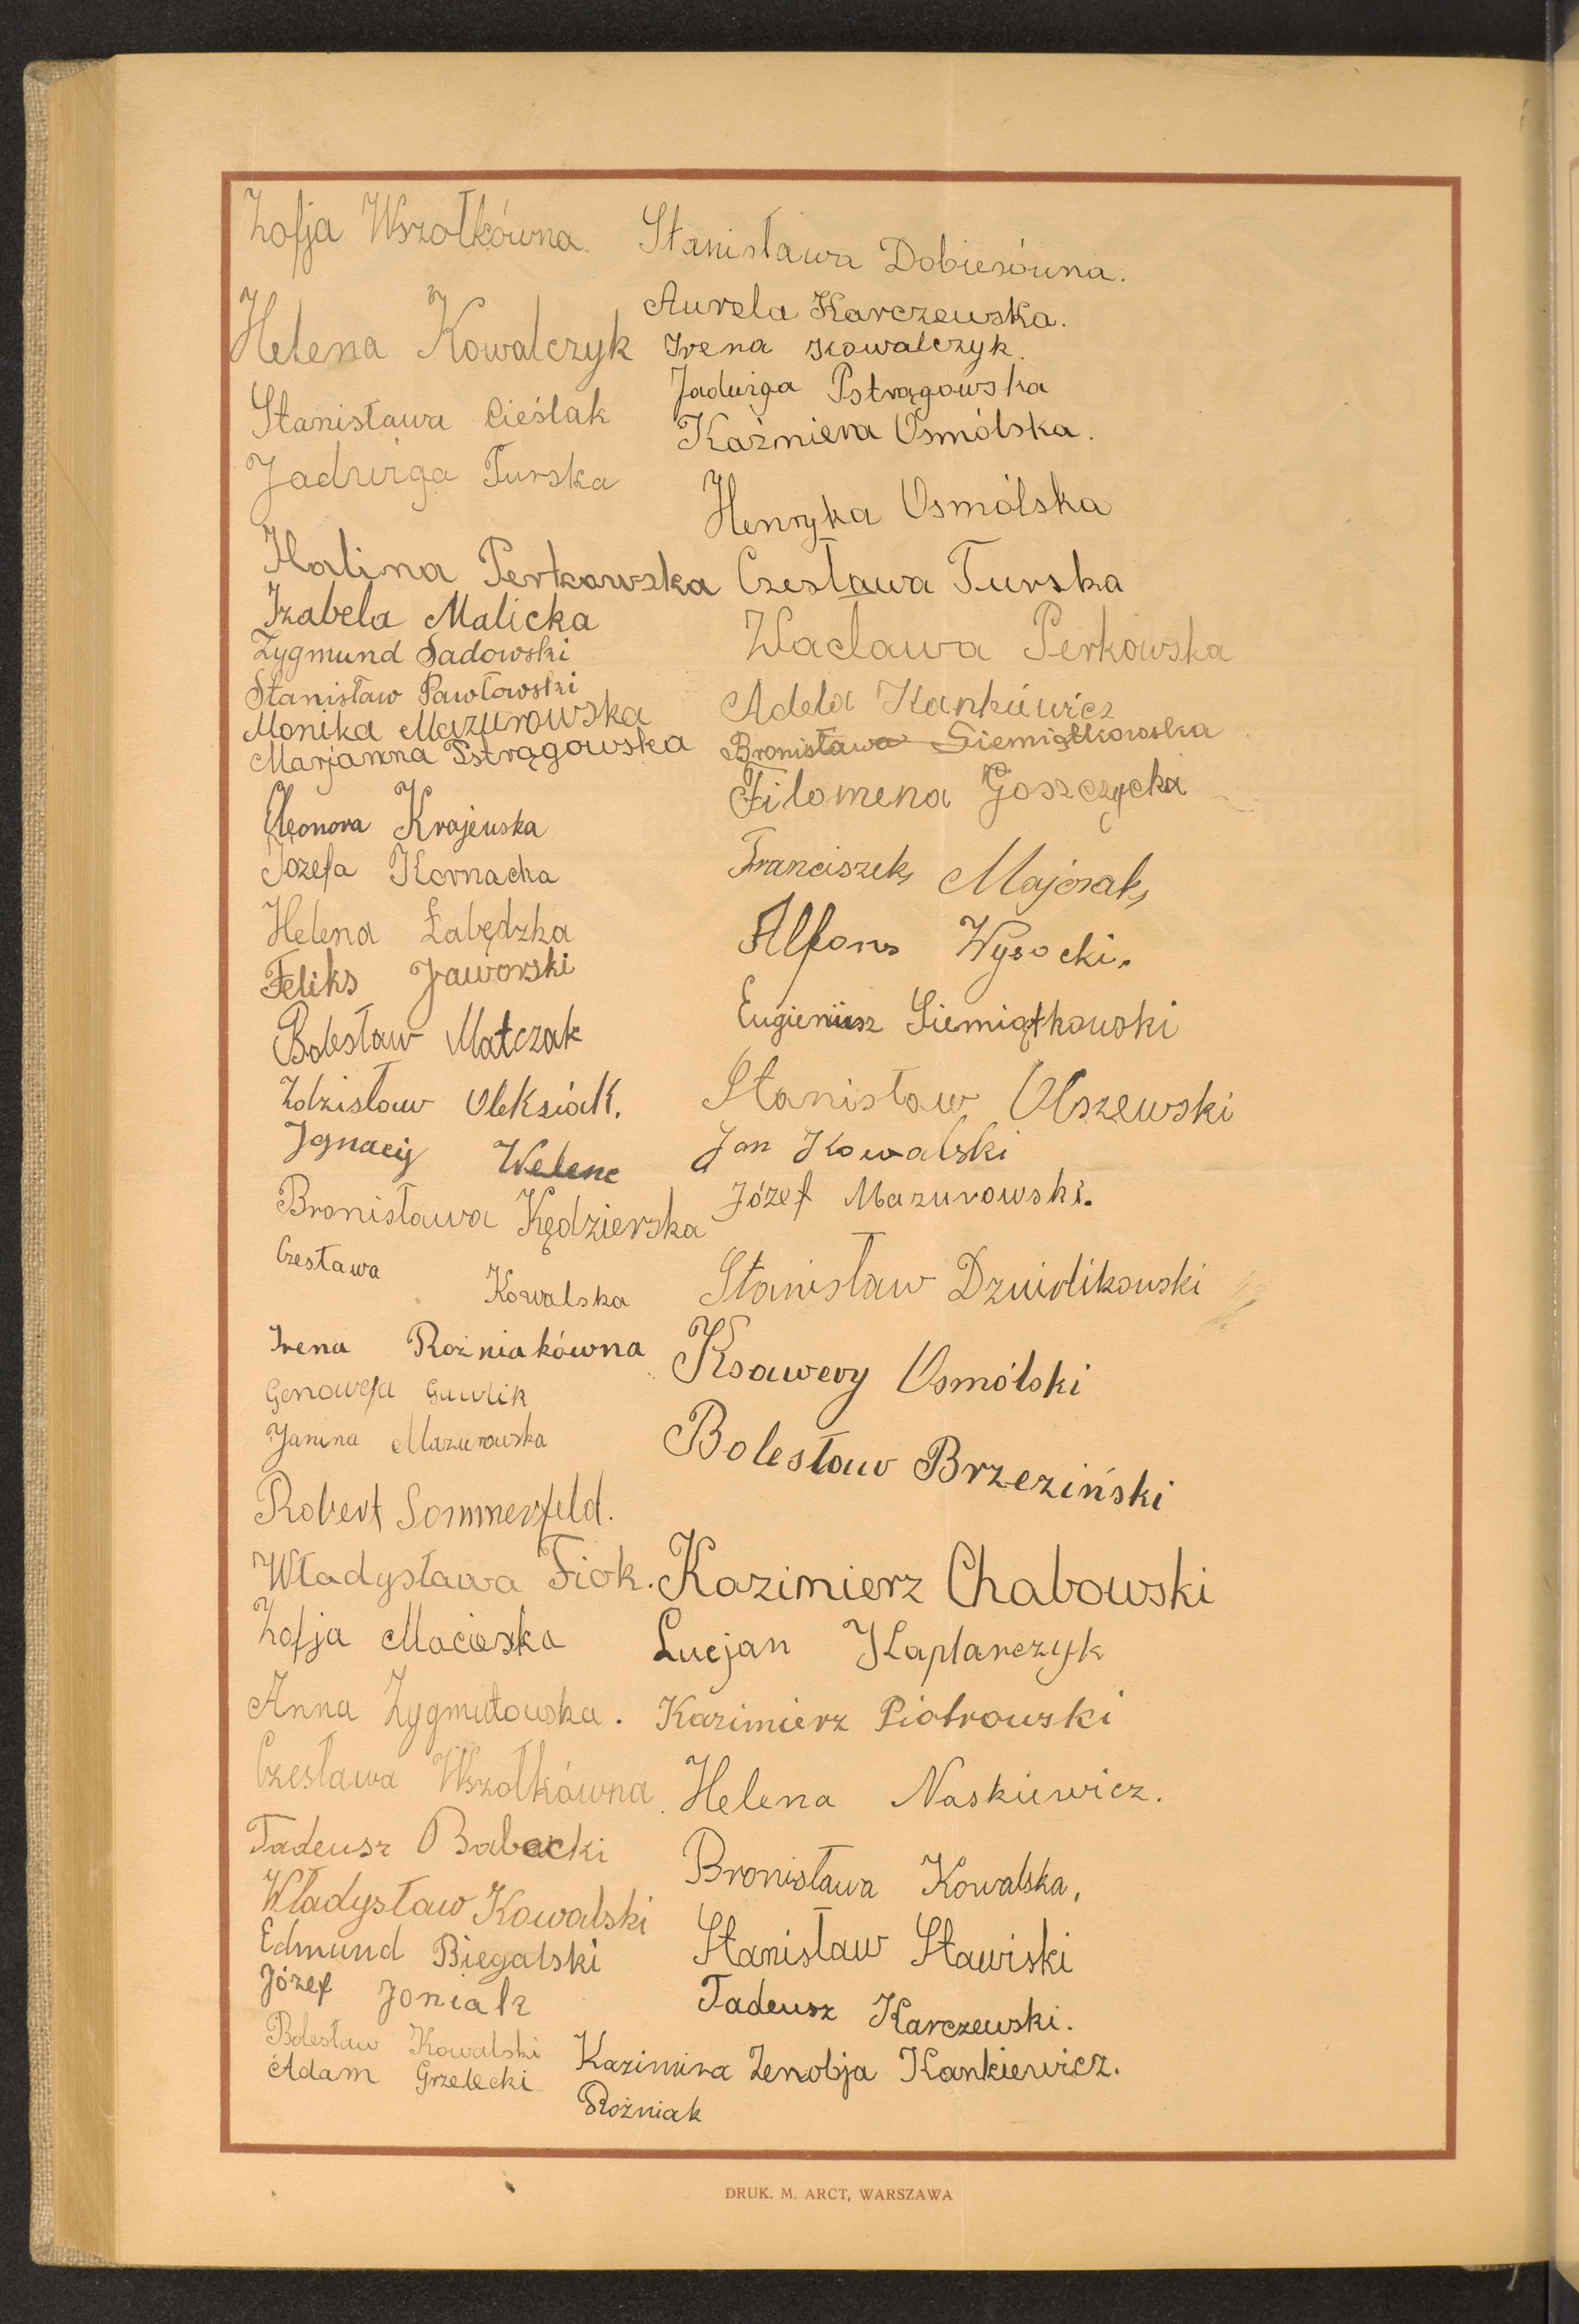 Zofja Wszołkówna
Helena Kowalczyk
Stanisława Cieślak
Jadwiga Turska
Halina Perkowska
Izabela Malicka
Zygmund Sadowski
Stanisław Pawłowski
Monika Mazurowska
Marjanna Pstrągowska
Eleonora Krajewska
Józefa Kornacka
Helena Łabędzka
Feliks Jaworski
Bolesław Matczak
Zdzisław Oleksiak.
Ignacy Welenc
Bronisława Kędzierska
Czesława Kowalska
Irena Rozniakówna
Genowefa Gawlik
Janina Mazurowska
Robert Sommerfeld.
Władysława Fiok.
Zofja Macioska
Anna Zygmutowska.
Czesława Wszołkówna
Tadeusz Babacki
Władysław Kowalski
Edmund Biegalski
Józef Joniak
Bolesław Kowalski
Adam Grzelecki
Stanisława Dobiesówna.
Aurela Karczewska.
Irena Kowalczyk.
Jadwiga Pstrągowska
Kaźmiera Osmólska.
Henryka Osmólska
Czesława Turska
Wacława Perkowska
Adela Kankiewicz
Bronisława Siemiątkowska
Filomena Goszczycka
Franciszek Majorak
Alfons Wysocki.
Eugieniusz Siemiątkowski
Stanisław Olszewski
Jan Kowalski
Józef Mazurowski.
Stanisław
Ksawery Osmólski
Bolesław Brzeziński
Kazimierz Chabowski
Lucjan Kaplarczyk
Kazimierz Piotrowski
Helena Naskiewicz.
Bronisława Kowalska,
Stanisław Stawiski
Tadeusz Karczewski.
Kazimira Zenobja Kankiewicz.
Rożniak
DRUK. M. ARCT, WARSZAWA